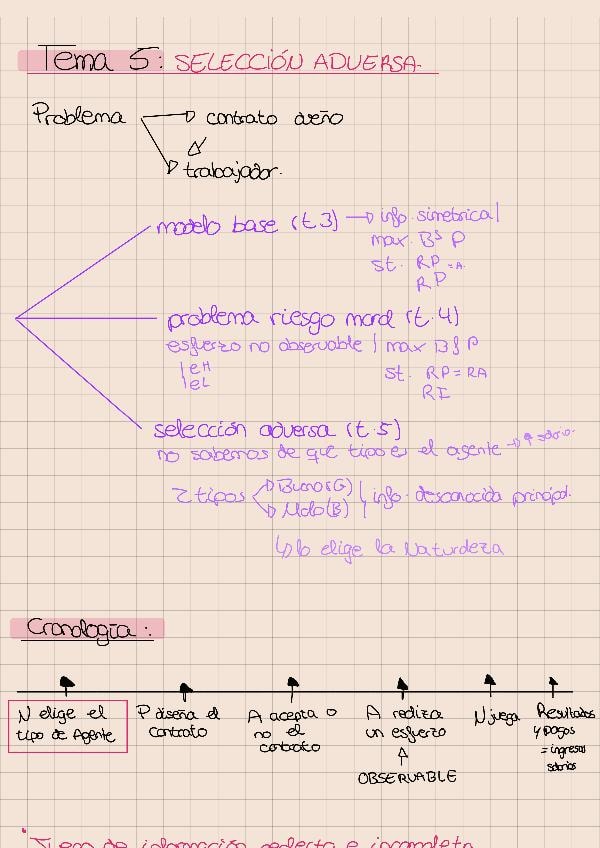 Tema 5: SELECCIÓN ADVERSA.
Problema → contrato dueño
→ trabajador.
modelo base (t.3) → info. simetrica
max. Bº P
st. RP = A.
RP
problema riesgo moral (t.4)
esfuerzo no observable | max Bº P
eH
st. RP = RA
eL
RI
selección adversa (t.5)
no sabemos de que tipo es el agente → salario.
2 tipos → Bueno (G)
→ Malo (B)
info. desconocida principal.
↳ lo elige la Naturaleza
Cronología:
N elige el tipo de Agente
P diseña el contrato
A acepta o no el contrato
A realiza un esfuerzo
↑
OBSERVABLE
N juega
Resultados y pagos = ingresos salarios